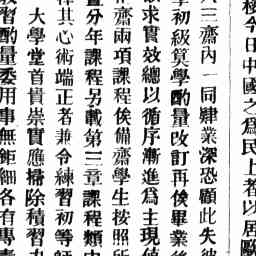 樓今日中國之爲民上者以居歐
入三齋內一同肄業深恐顧此失彼
學初級算學酌量改訂再俟畢業後
求實效總以循序漸進爲主現値
齋兩項課程俟備齋學生按照所
置分年課程另載第三章課程類中
擇其心術端正者兼令練習初等師
大學堂首貴崇實應掃除積習力
設酌量委用事無鉅細各有專責